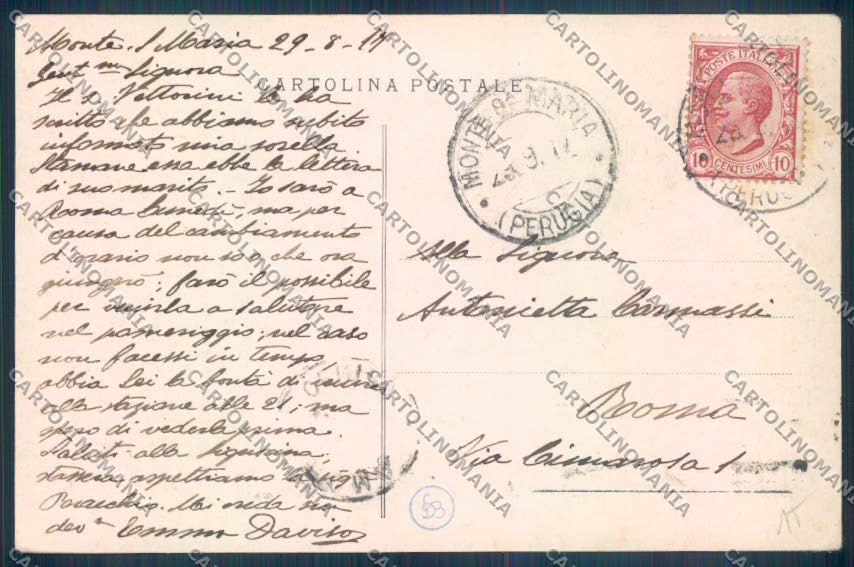 Monte S Maria 29-8-17
Gent ma Signora
CARTOLINA POSTALE
Il s. Vettorini le ha
scritto che abbiamo subito
informato mia sorella.
Stamane essa ebbe la lettera
di suo marito. - Io sarò a
Roma lunedì, ma per
causa del cambiamento
d'orario non so a che ora
giungerò; farò il possibile
per venirla a salutare
nel pomeriggio; nel caso
non facessi in tempo
abbia Lei la bontà di venire
alla stazione alle 21; ma
spero di vederla prima.
Saluti alla Signorina;
stasera aspettiamo la sig
Mi creda sua
dev a Emma Daviso
MONTE Sa MARIA
(PERUGIA)
POSTE ITALIANE
10 CENTESIMI 10
Alla Signora
Antonietta Carmassi
Roma
Via Cimarosa 1
63
15
CARTOLINOMANIA